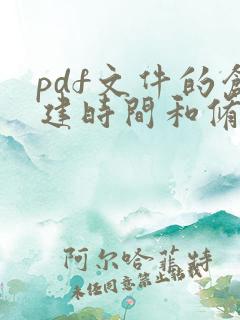 pdf文件的創
建時間和脩
阿尔哈菲特
未经同意禁止转载